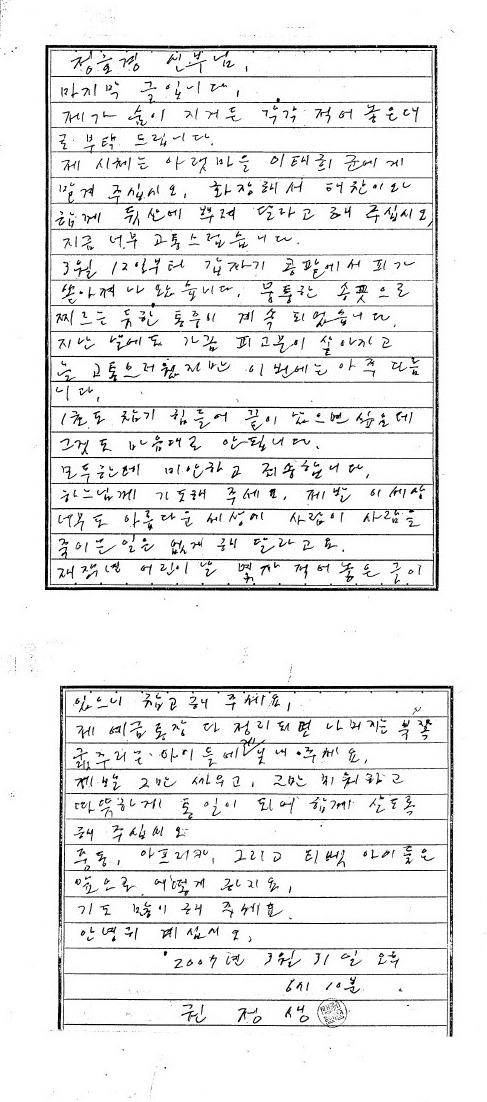 정호경 신부님,
마지막 글입니다,
제가 숨이 지거든 각각 적어 놓은대
로 부탁 드립니다.
제 시체는 아랫마을 이태희 군에게
맡겨 주십시오, 화장해서 태찬이와
함께 뒷산에 뿌려 달라고 해 주십시오,
지금 너무 고통스럽습니다.
3월 12일부터 갑자기 콩팥에서 피가
쏟아져 나왔습니다. 뭉툭한 송곳으로
찌르는 듯한 통증이 계속 되었습니다.
지난 날에도 가끔 피고름이 쏟아지고
늘 고통스러웠지만 이번에는 아주 다릅
니다,
1초도 참기 힘들어 끝이 났으면 싶은데
그것도 마음대로 안됩니다.
모두한테 미안하고 죄송합니다,
하느님께 기도해 주세요, 제발 이 세상
너무도 아름다운 세상에 사람이 사람을
죽이는 일은 없게 해 달라고요.
재작년 어린이날 적어 놓은 글이
있으니 참고해 주세요,
제 예금통장 다 정리되면 나머지는 북쪽
굶주리는 아이들에게 보내 주세요,
제발 그만 싸우고, 그만 미워하고
따뜻하게 통일이 되어 함께 살도록
해 주십시오
중동, 아프리카, 그리고 티벳 아이들은
앞으로 어떻게 하지요,
기도 많이 해 주세요
안녕히 계십시오,
2007년 3월 31일 오후
6시 10분
권 정 생